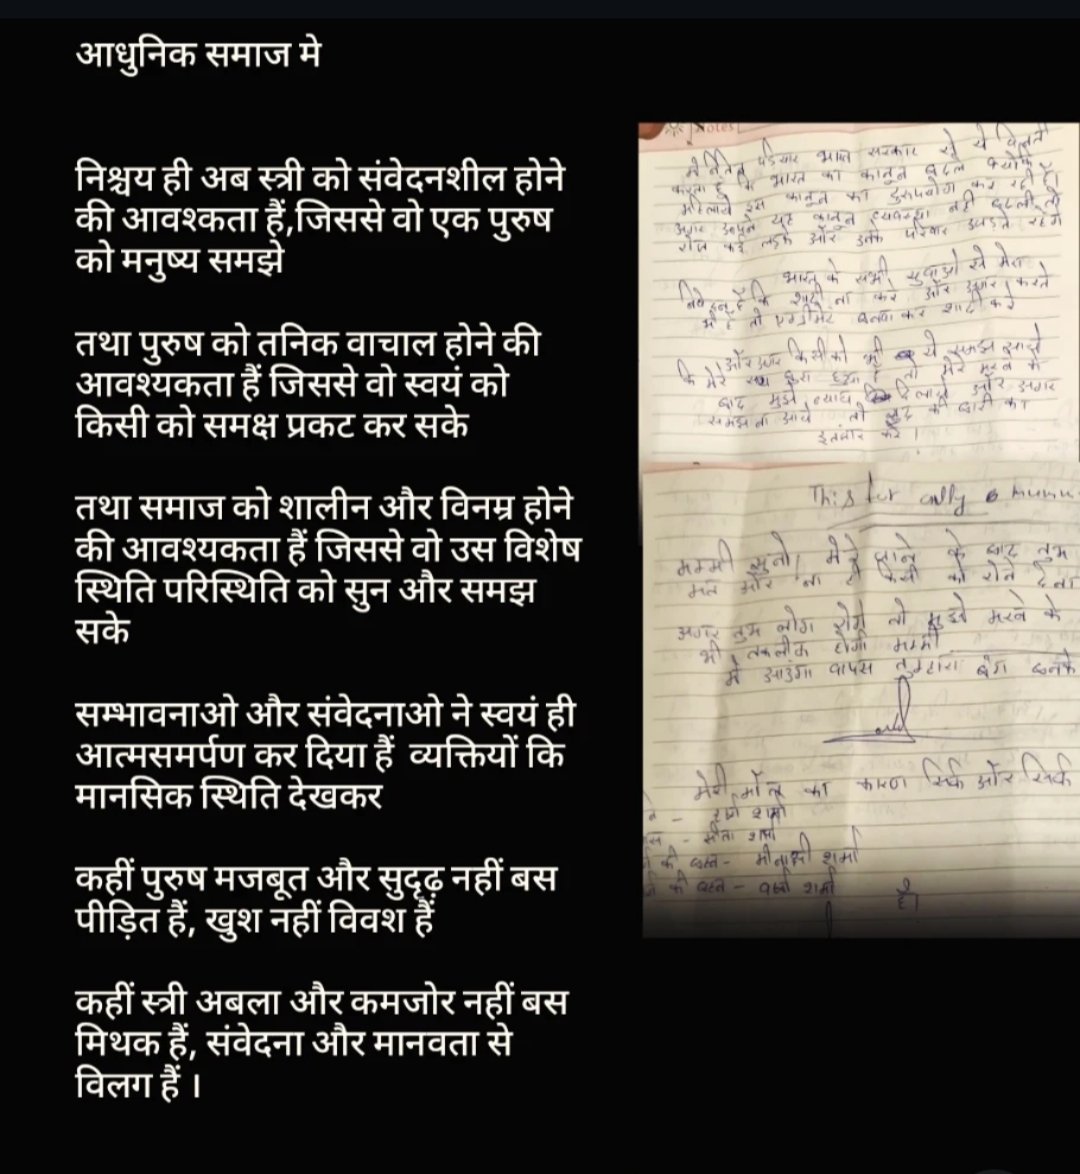 आधुनिक समाज मे
निश्चय ही अब स्त्री को संवेदनशील होने
की आवश्कता हैं,जिससे वो एक पुरुष
को मनुष्य समझे
तथा पुरुष को तनिक वाचाल होने की
आवश्यकता हैं जिससे वो स्वयं को
किसी को समक्ष प्रकट कर सके
तथा समाज को शालीन और विनम्र होने
की आवश्यकता हैं जिससे वो उस विशेष
स्थिति परिस्थिति को सुन और समझ
सके
सम्भावनाओ और संवेदनाओ ने स्वयं ही
आत्मसमर्पण कर दिया हैं व्यक्तियों कि
मानसिक स्थिति देखकर
कहीं पुरुष मजबूत और सुदृढ़ नहीं बस
पीड़ित हैं, खुश नहीं विवश हैं
कहीं स्त्री अबला और कमजोर नहीं बस
मिथक हैं, संवेदना और मानवता से
विलग हैं ।
Notes
भारत सरकार से ये
करता हूँ कि भारत का कानुन बदले क्योंकि
महिलाये इस कानुन का दुरुपयोग कर रही हैं।
अगर आपने यह कानुन व्यवस्था नही बदली तो
रोज कई लडके और उनके परिवार उजडते रहेंगे
भारत के सभी युवाओ से मेरा
निवेदन हैं कि शादी ना करे और अगर करते
भी हैं तो एग्रीमेंट बनवा कर शादी करे
और अगर किसी को भी ये समझ आये
कि मेरे साथ बुरा हुआ है तो मेरे मरने के
बाद मुझे न्याय दिलाये और अगर
समझ ना आये तो खुद की बारी का
इंतजार करे।
This for only
मम्मी सुनो, मेरे जाने के बाद तुम
मत और ना ही किसी को रोने देना
अगर तुम लोग रोगे तो मुझे मरने के
भी तकलीफ होगी मम्मी
में आउंगा वापस तुम्हारा बनके
मेरी मौत का कारण सिर्फ और सिर्फ
शर्मा
शर्मा
की बहन - मीनाक्षी शर्मा
की बहन - शर्मा है।